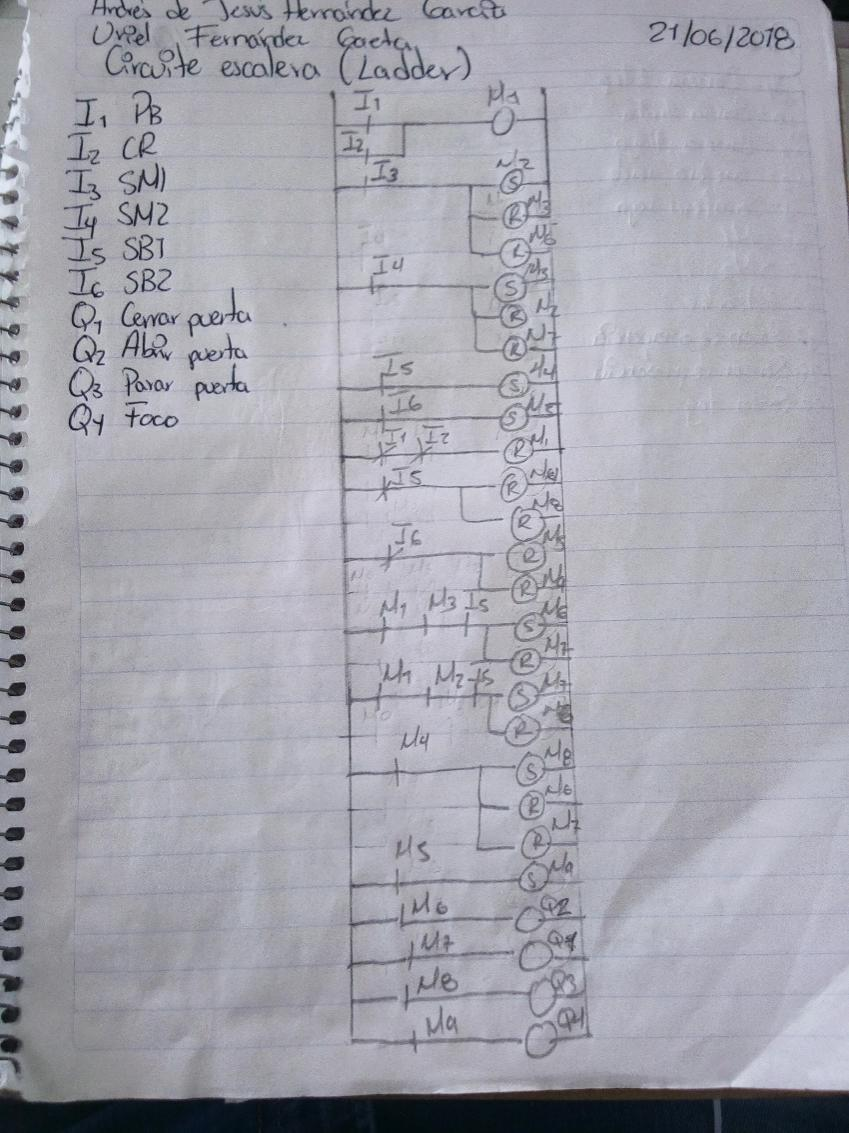 Andrés de Jesús Hernández García
Uriel Fernández Gaeta
21/06/2018
Circuite escalera (Ladder)
I1 PB
I2 CR
I3 SM1
I4 SM2
I5 SB1
I6 SB2
Q1 Cerrar puerta
Q2 Abrir puerta
Q3 Parar puerta
Q4 Foco
I1 M1
I2
I3 M2
S
R M3
R M6
I4 M3
S
R M2
R M7
I5 S M4
I6 S M5
I1 I2 R M1
I5 R M4
R M8
I6 R M5
R M9
M1 M3 I5 S M6
R M7
M1 M2 I5 S M7
R
M4 S M8
R M6
R M7
M5 S M9
M6 Q2
M7 Q1
M8 Q3
M9 Q4